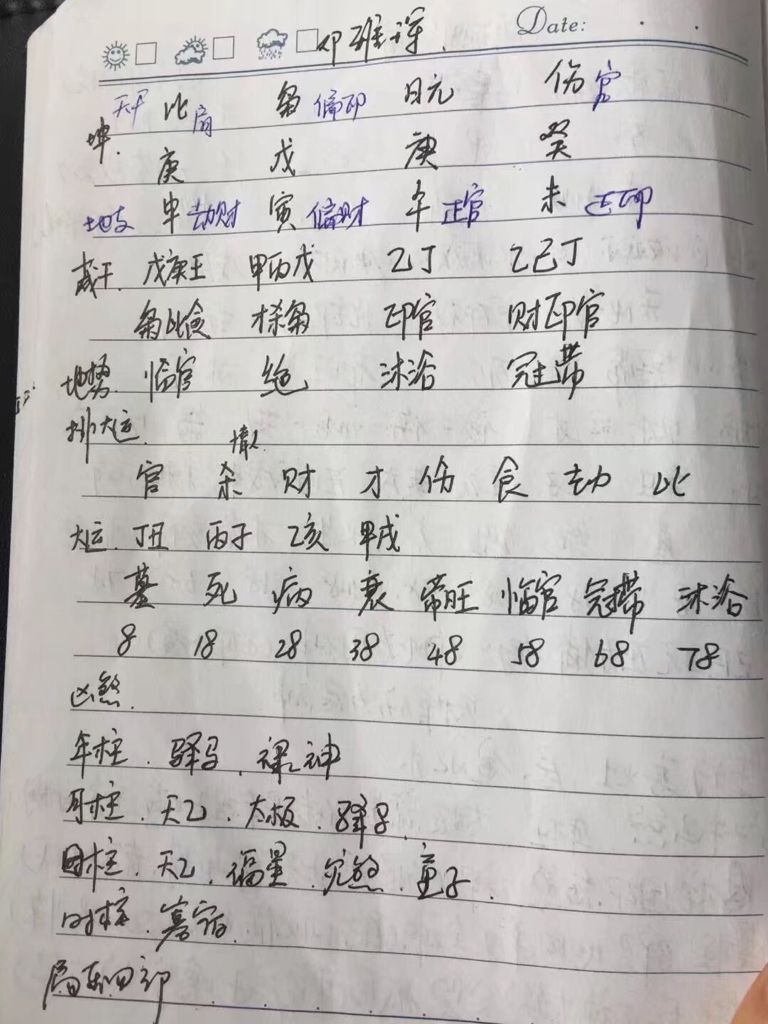 Date:
天干 比肩 枭 偏印 日元 伤官
坤. 庚 戊 庚 癸
地支 申 劫财 寅 偏财 午 正官 未 正印
藏干. 戊庚壬 甲丙戊 乙丁 乙己丁
枭比食 才杀枭 印官 财印官
地势 临官 绝 沐浴 冠带
排大运.
官 杀 财 才 伤 食 劫 比
大运. 丁丑 丙子 乙亥 甲戌
墓 死 病 衰 帝旺 临官 冠带 沐浴
8 18 28 38 48 58 68 78
凶煞.
年柱. 驿马. 禄神
月柱. 天乙. 太极. 驿马.
日柱. 天乙. 福星. 灾煞. 童子.
时柱. 寡宿.